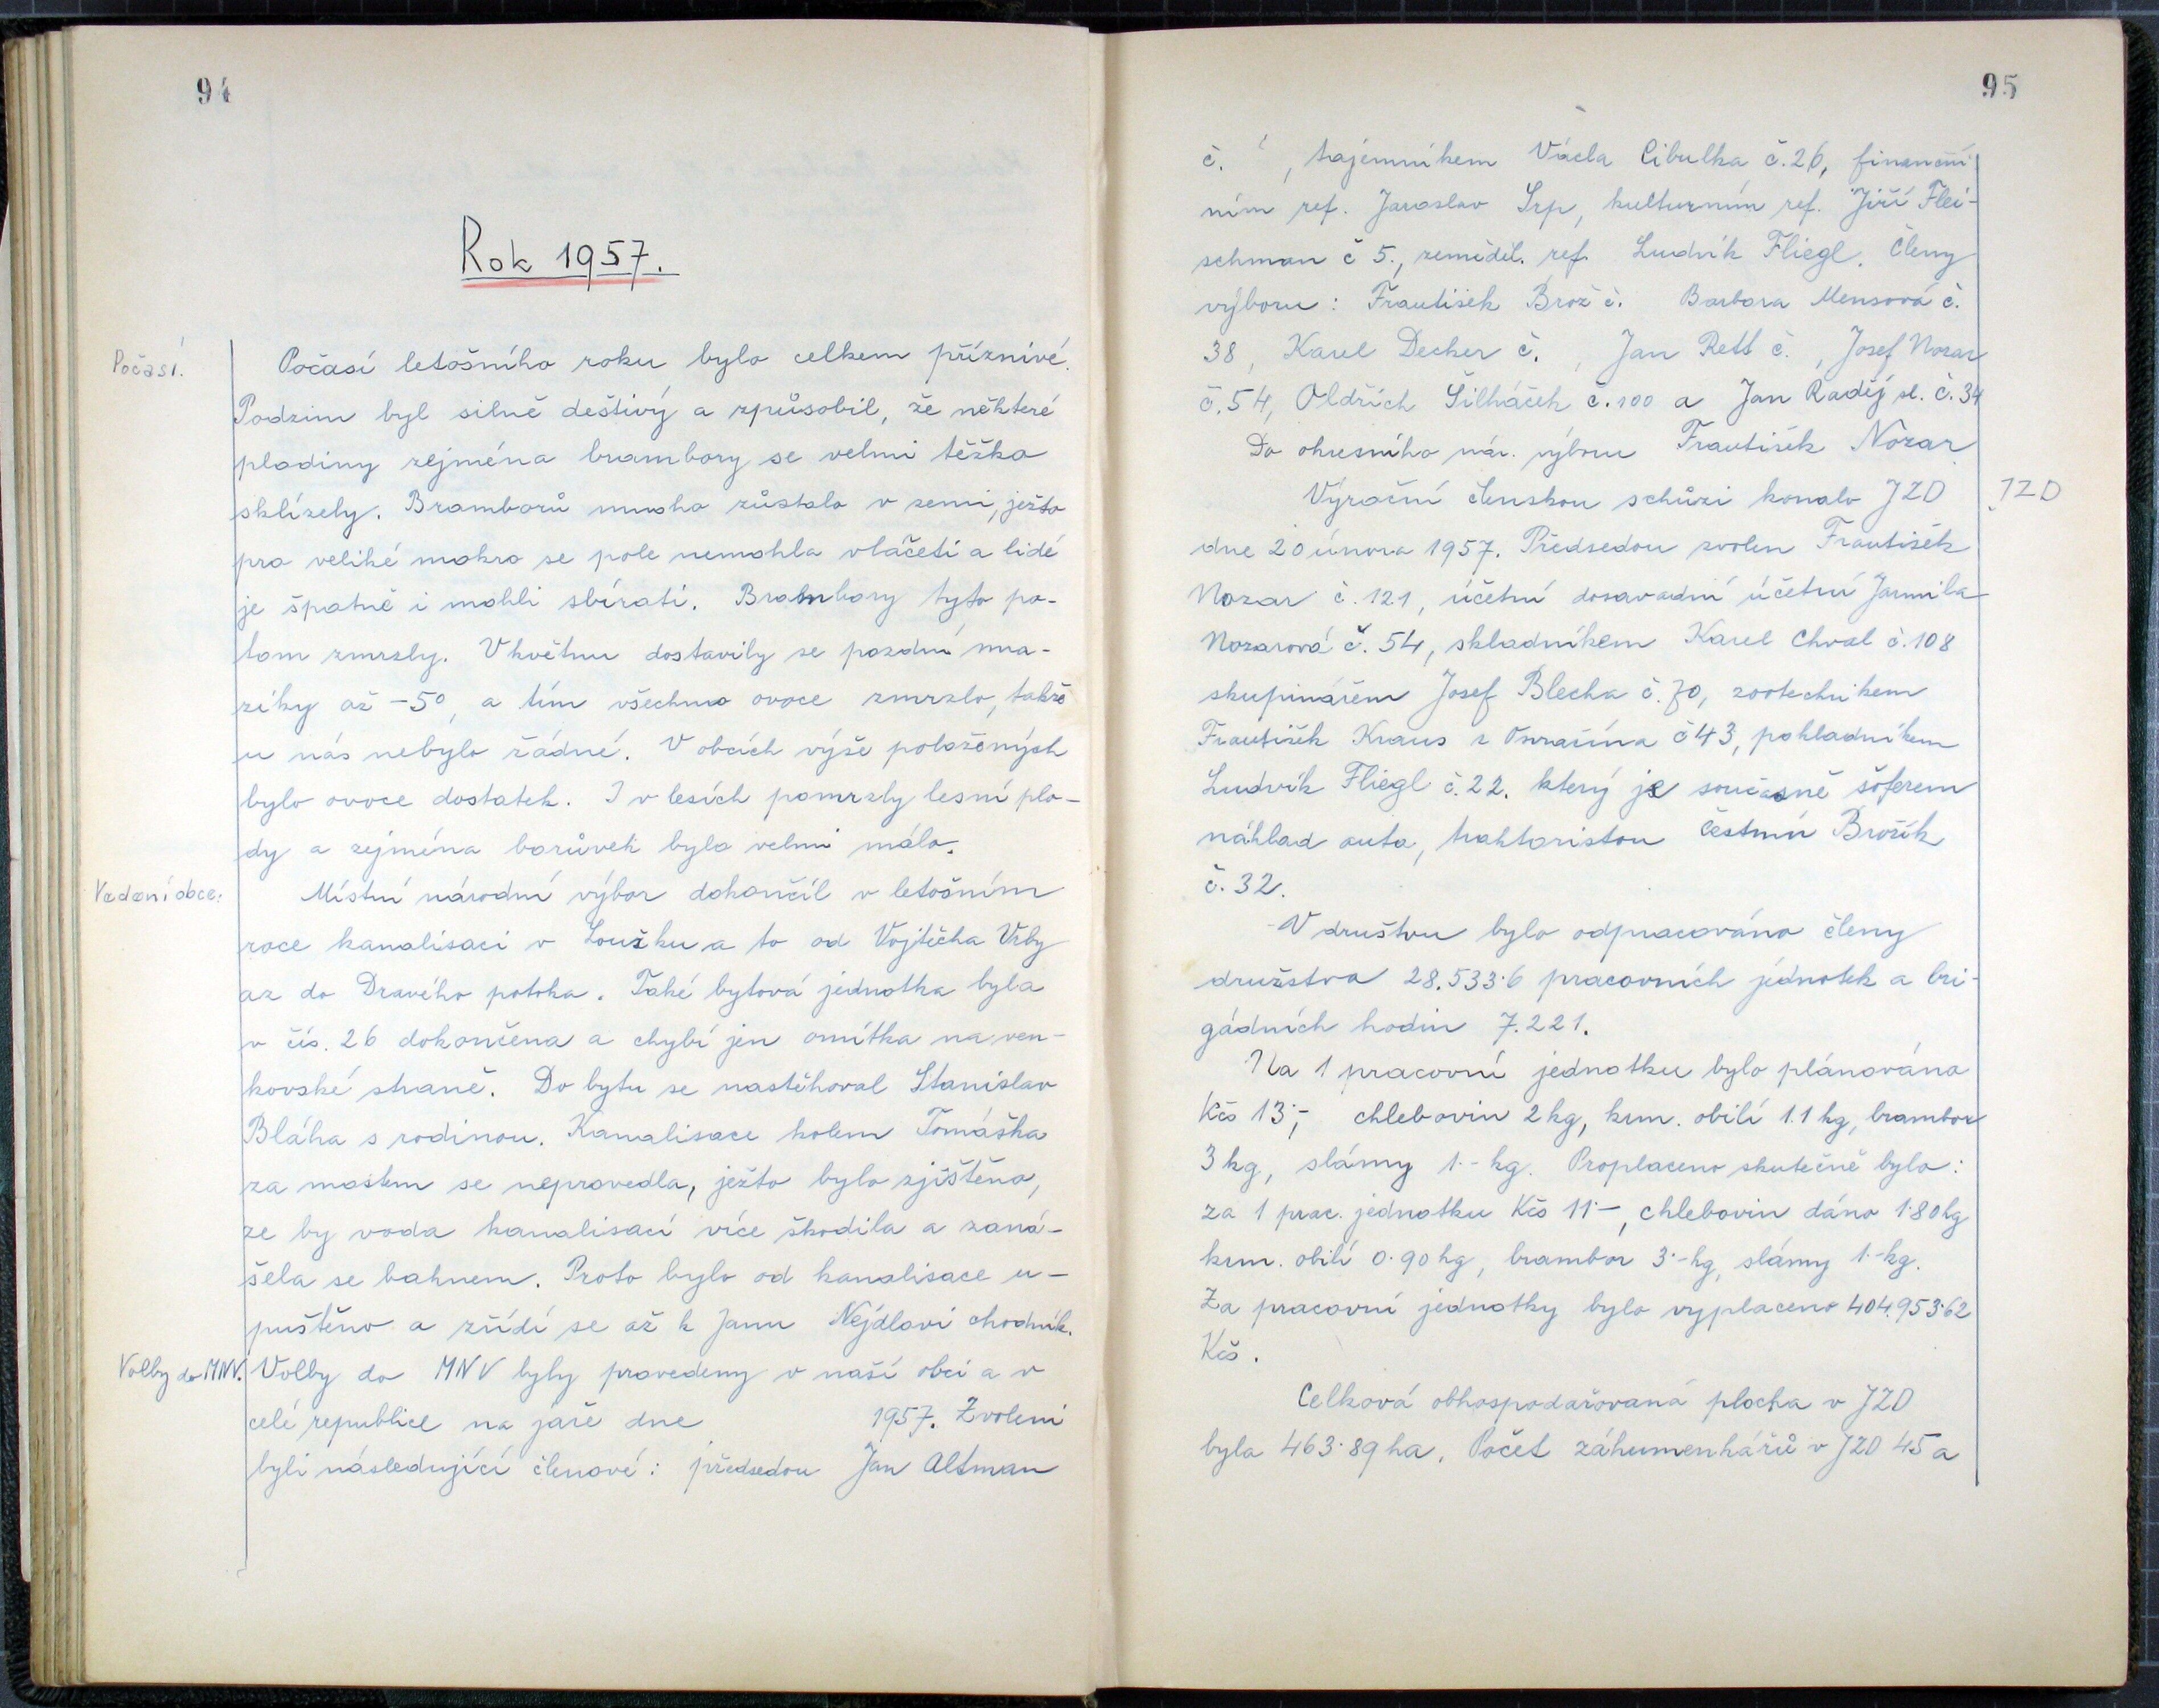 94
Rok 1957.
Počasí.
Počasí letošního roku bylo celkem příznivé.
Podzim byl silně deštivý a způsobil, že některé
plodiny zejména brambory se velmi těžko
sklízely. Bramborů mnoho zůstalo v zemi, ježto
pro veliké mokro se pole nemohla vláčeti a lidé
je špatně i mohli sbírati. Brambory tyto po-
tom zmrzly. V květnu dostavily se pozdní mra-
zíky až -5°, a tím všechno ovoce zmrzlo, takže
u nás nebylo žádné. V obcích výše položených
bylo ovoce dostatek. I v lesích pomrzly lesní plo-
dy a zejména borůvek bylo velmi málo.
Vedení obce.
Místní národní výbor dokončil v letošním
roce kanalisaci v Loužku a to od Vojtěcha Vrby
az do Dravého potoka. Také bytová jednotka byla
v čís. 26 dokončena a chybí jen omítka na ven-
kovské straně. Do bytu se nastěhoval Stanislav
Bláha s rodinou. Kanalisace kolem Tomáška
za mostem se neprovedla, ježto bylo zjištěno,
ze by voda kanalisací více škodila a zaná-
šela se bahnem. Proto bylo od kanalisace u-
puštěno a zřídí se až k Janu Nejdlovi chodník.
Volby do MNV.
Volby do MNV byly provedeny v naší obci a v
celé republice na jaře dne 1957. Zvoleni
byli následující členové: předsedou Jan Altman
95
č. , tajemníkem Václa Cibulka č. 26, finanční
ním ref. Jaroslav Srp, kulturním ref. Jiří Flei-
schman č 5., zeměděl. ref. Ludvík Fliegl. Členy
výboru: František Brož č. Barbora Mensová č.
38, Karel Decker č. , Jan Rett č. , Josef Nozar
č. 54, Oldřich Šilháček č. 100 a Jan Raděj st. č. 34
Do okresního nár. výboru František Nozar
JZD
Výroční členskou schůzi konalo JZD
dne 20 února 1957. Předsedou zvolen František
Nozar č. 121, účetní dosavadní účetní Jarmila
Nozarová č. 54, skladníkem Karel Chval č. 108
skupinářem Josef Blecha č. 70, zootechnikem
František Kraus z č 43, pokladníkem
Ludvík Fliegl č. 22. který je současně šoferem
náklad auta, traktoristou Čestmír Brožík
č. 32.
V družtvu bylo odpracováno členy
družstva 28.533·6 pracovních jednotek a bri-
gádních hodin 7.221.
Na 1 pracovní jednotku bylo plánováno
Kčs 13·-, chlebovin 2 kg, krm. obilí 1.1 kg, brambor
3 kg, slámy 1·- kg. Proplaceno skutečně bylo:
za 1 prac. jednotku Kčs 11·-, chlebovin dáno 1·80 kg
krm. obilí 0·90 kg, brambor 3·- kg, slámy 1·- kg.
Za pracovní jednotky bylo vyplaceno 404.953·62
Kčs.
Celková obhospodařovaná plocha v JZD
byla 463·89 ha. Počet záhumenkářů v JZD 45 a